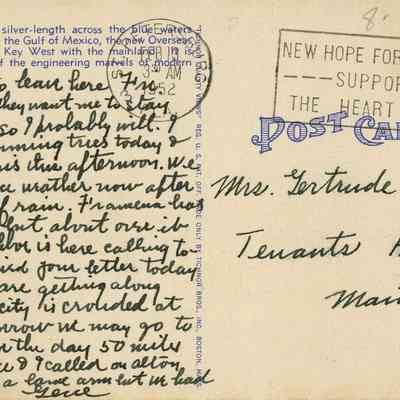 silver-length across the blue waters
the Gulf of Mexico, the new Overseas
Key West with the mainland. It is
f the engineering marvels of modern
to leave here
they want me to stay
so I probably will. I
nning trees today &
is this afternoon. We
weather now after
f rain. has
about over it
is here calling to-
your letter today
are getting along
city is crowded at
orrow we may go to
r the day 50 miles
e & I called on Alton
a lame arm but we had
Gene
"TICHNOR QUALITY VIEWS" REG. U. S. PAT. OFF. MADE ONLY BY TICHNOR BROS., INC., BOSTON, MASS.
AM
1952
8-
NEW HOPE FOR
SUPPOR
THE HEART
POST CA
Mrs. Gertrude
Tenants H
Main